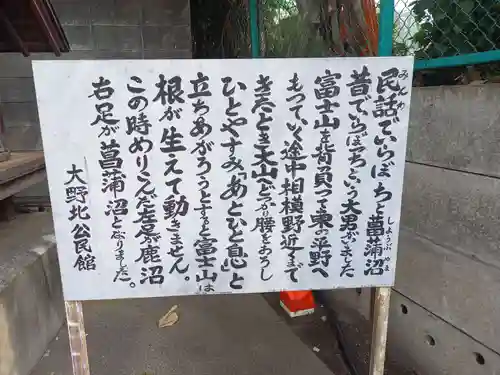 民話でいらぼちと菖蒲沼
昔でいらぼちという大男が
富士山を背負って東の平野へ
もっていく途中相模野近まで
きたとき大山にどっかり腰をおろし
ひとやすみ「あとひと息」と
立ちあがろうとすると富士山は
根が生えて動きません。
この時めりこんだ左足が鹿沼
右足が菖蒲沼となりました。
大野北公民館